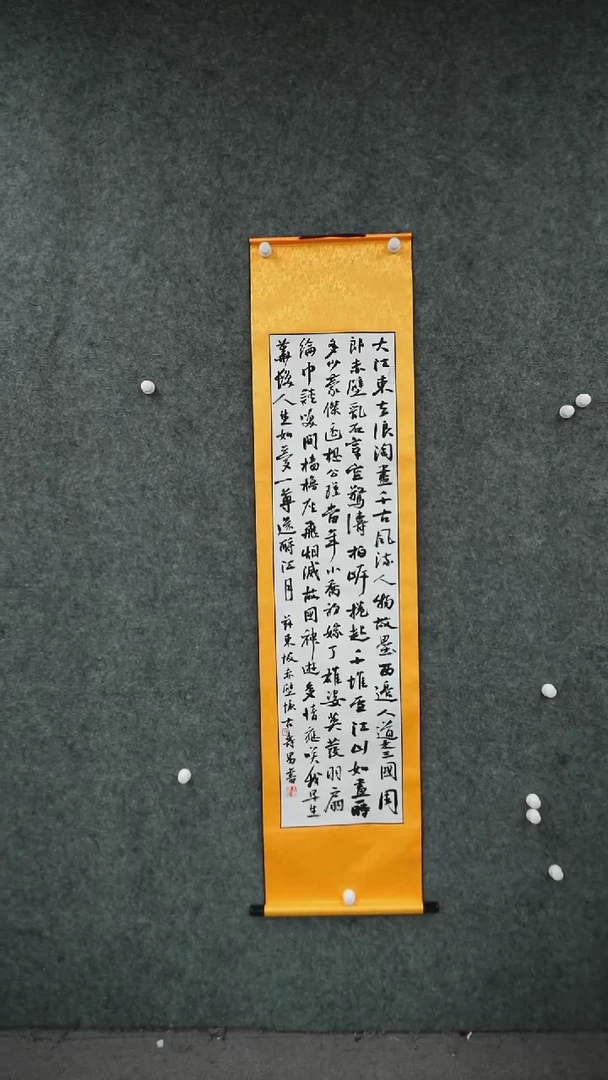 大江東去浪淘盡千古風流人物故壘西邊人道是三國周
郎赤壁亂石穿空驚濤拍岸捲起千堆雪江山如畫一時
多少豪傑遙想公瑾當年小喬初嫁了雄姿英發羽扇
綸巾談笑間檣櫓灰飛烟滅故國神遊多情應笑我早生
華髮人生如夢一尊還酹江月 蘇東坡赤壁懷古 書